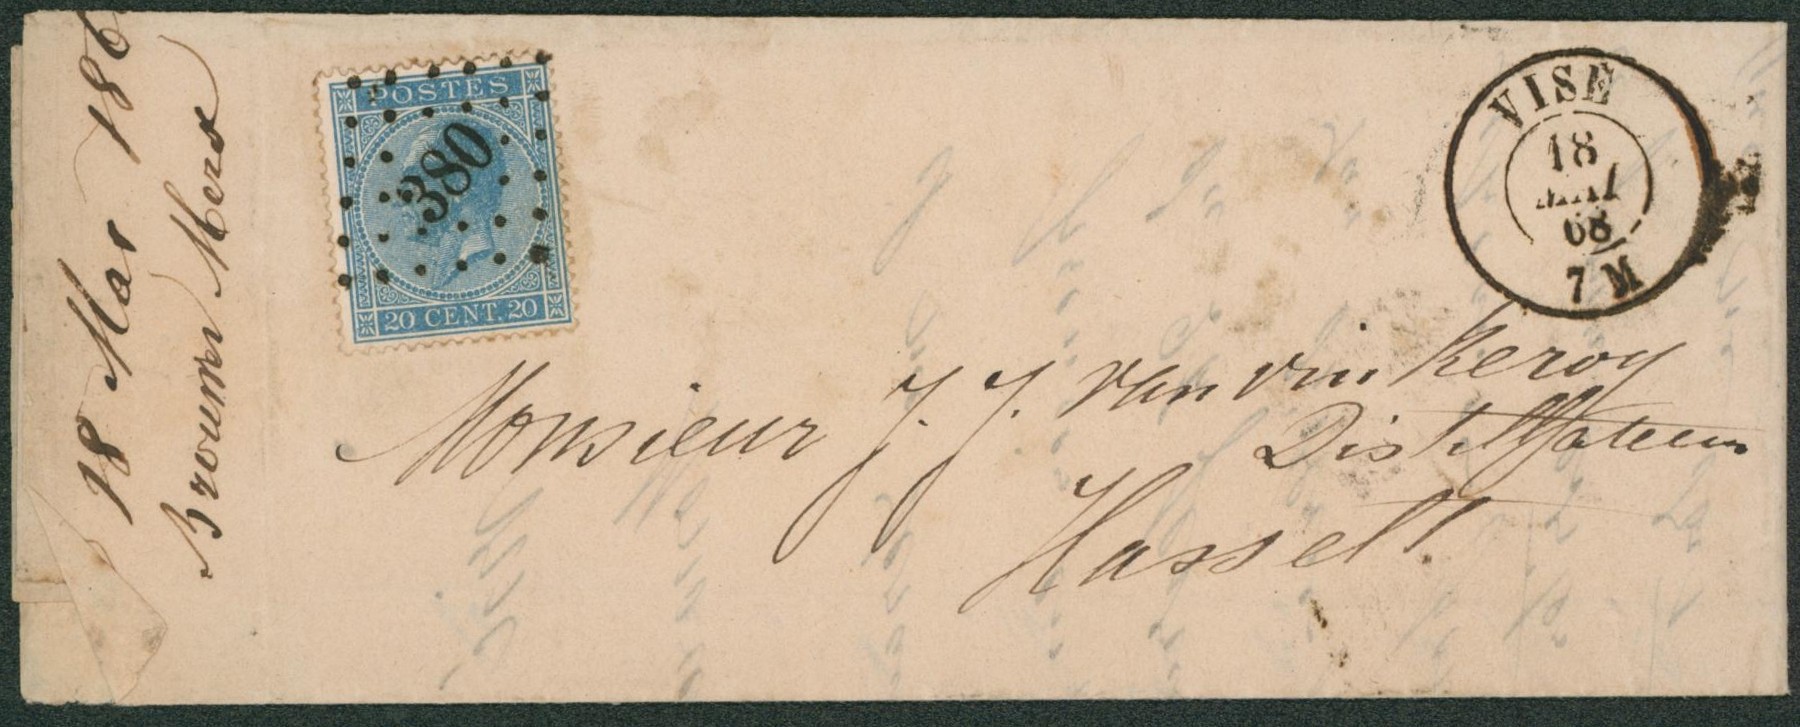 18 Mai 186
Brouwn Merx
POSTES
380
20 CENT. 20
VISÉ
18
MAI
68
7 M
Monsieur J. J. Van Vinkeroy
Distillateur
Hasselt